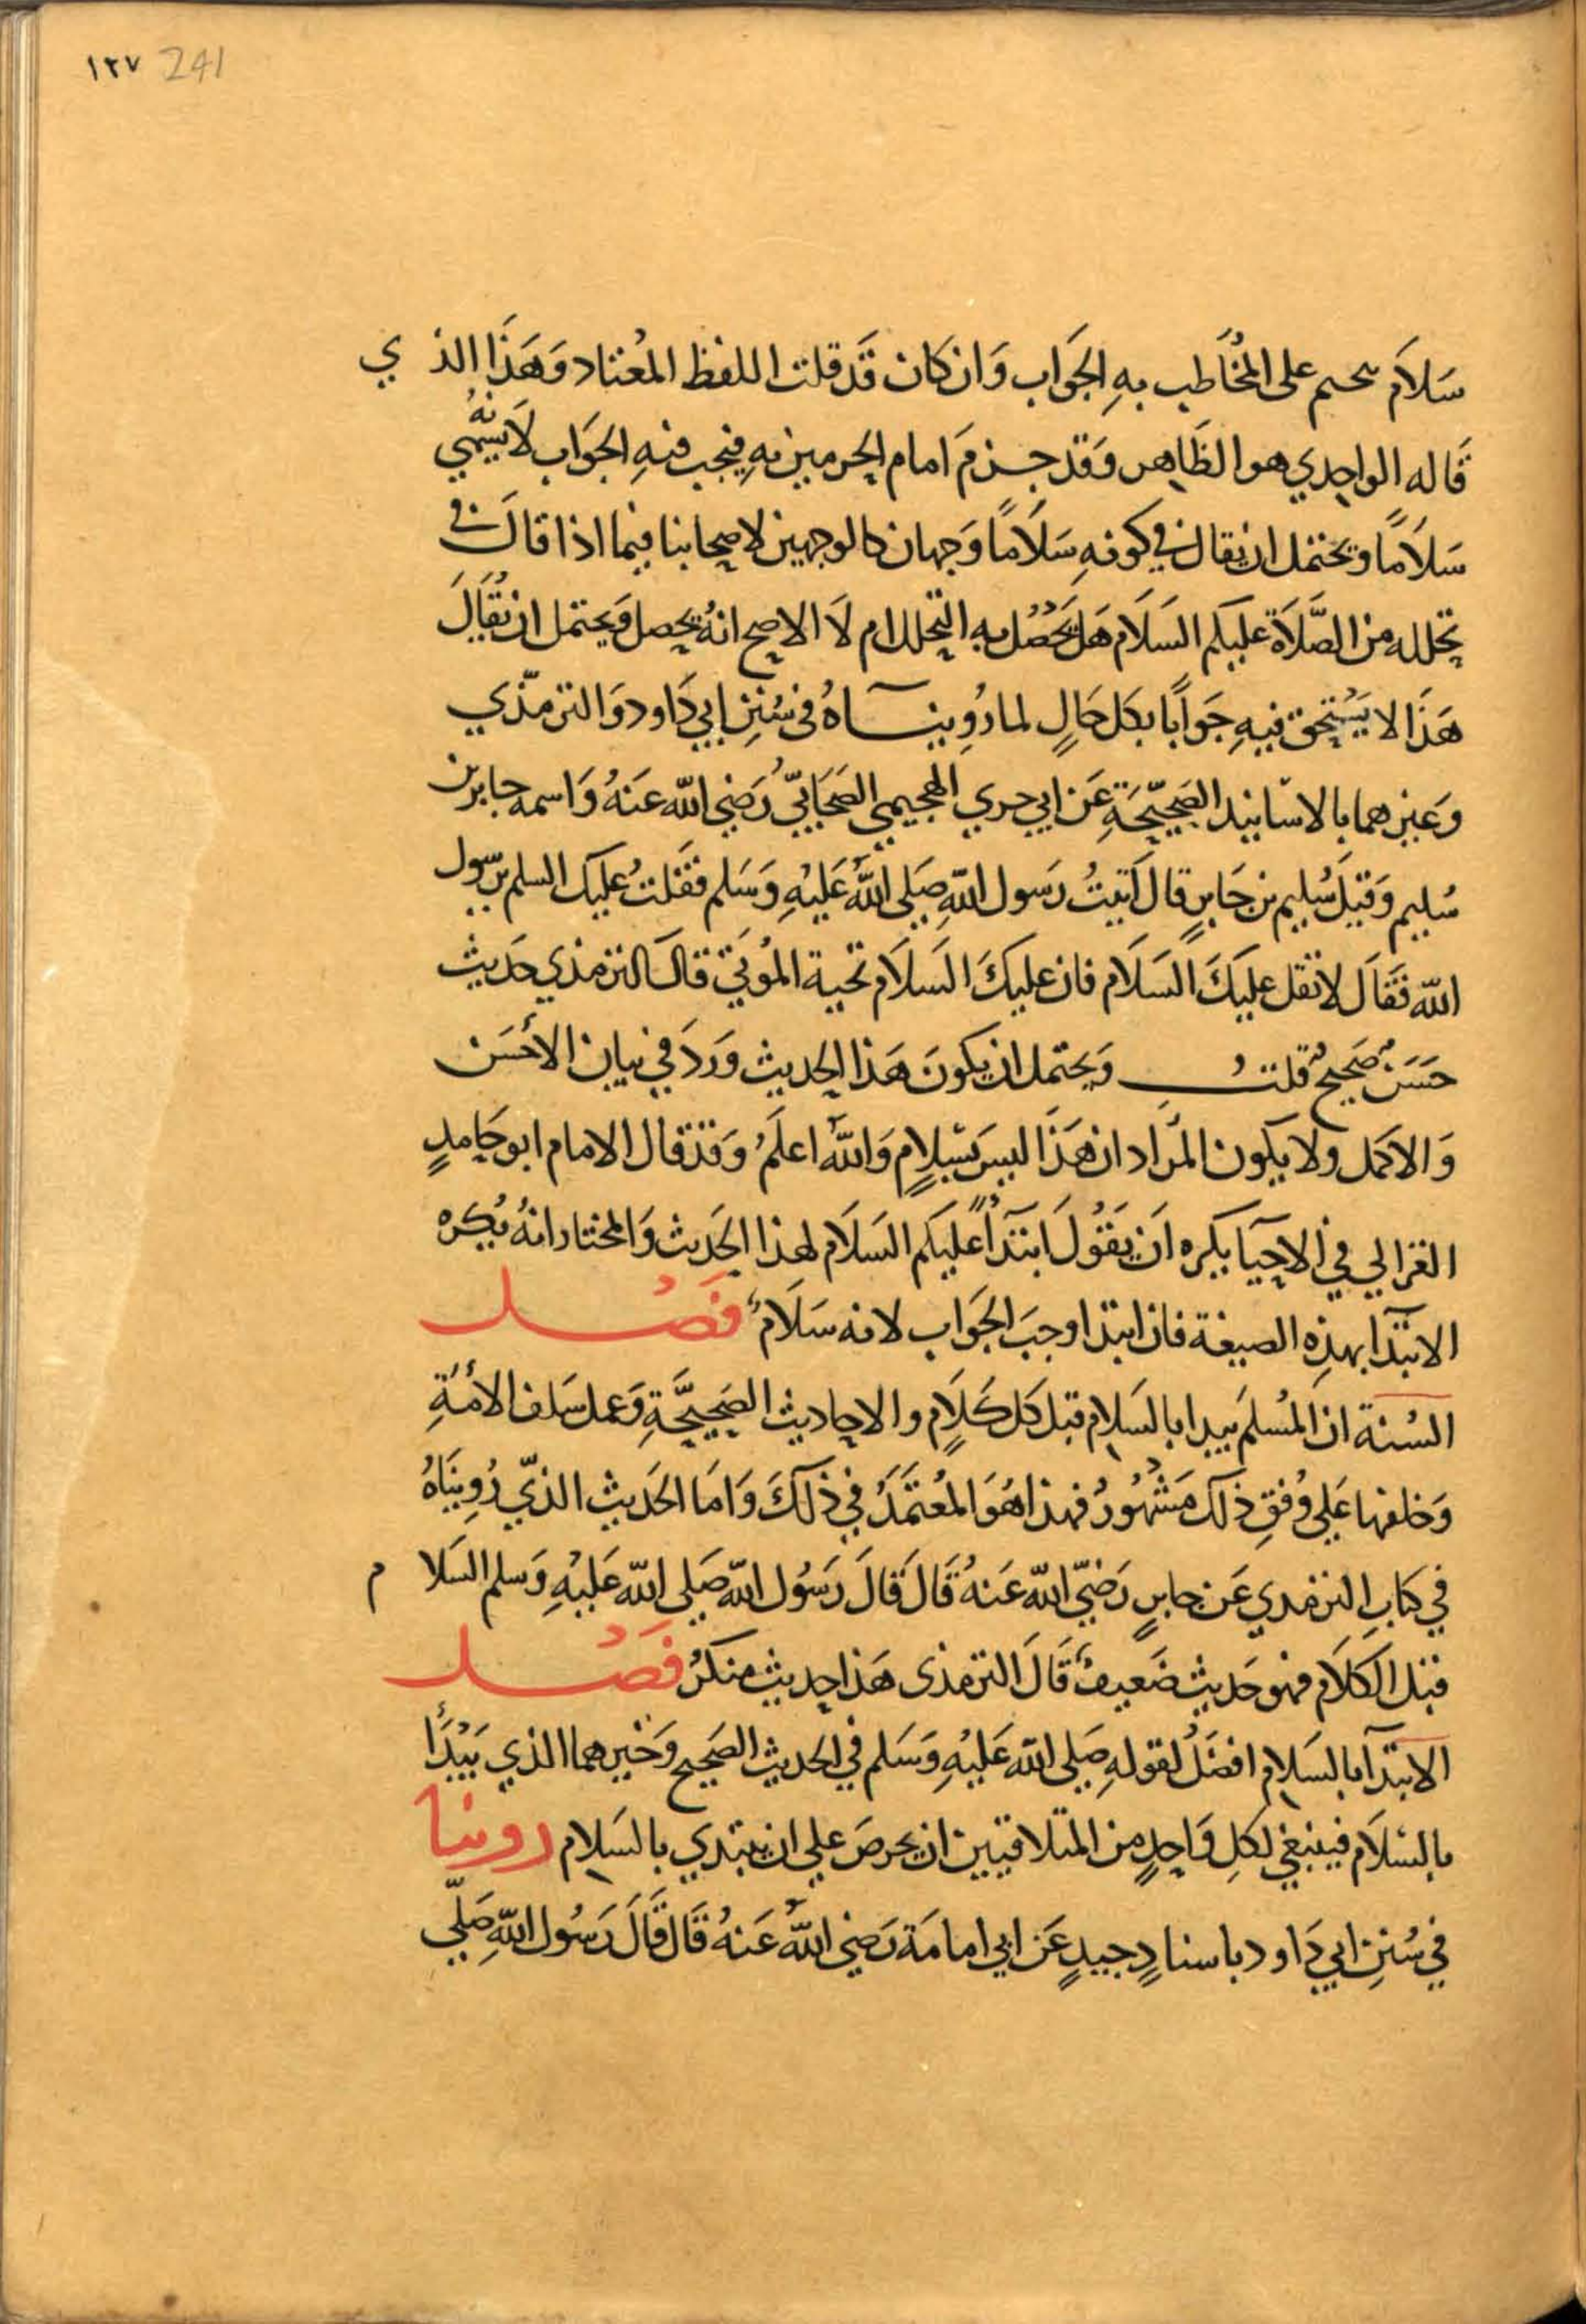 ١٢٧ 241
سَلاَم يتحتم على المخَاطب بهِ الجَوَاب وَان كَان قَد قلت اللفظ المعْتاد وَهَذَا الذي
قَاله الواحِدي هو الظَاهِر وَقد جزمَ امام الحرمين بهِ فيجب فيهِ الجوَاب لاَنهُ يسَمّي
سَلاَمًا ويحتمل ان يقال في كونهِ سَلاَمًا وَجهان كالوجهين لاصحابنا فيما اذا قالَ في
تحلله من الصَّلاَة عليكم السَلاَم هَل يَحْصُل به التحلل ام لاَ الاصح انهُ يحصل وَيحتمل ان يُقَالَ
هَذَا لا يَسْتحق فيهِ جَوَابًا بكل حَالٍ لما رُوِينَاهُ في سُنِنِ ابي دَاود وَالترمّذي
وَغيرهما بالاسَانيد الصَحِيحَةِ عَن ابي جري الهجيمي الصَحَابيّ رَضي اللّه عَنهُ وَاسمه جابر بن
سُليم وَقيلَ سُليم بن جَابرٍ قال اَتيتُ رَسول اللهِ صَلى اللهُ عَليْهِ وَسَلم فقَلتُ عليكَ السلم يرسول
اللّه فَقَالَ لا تقل عليَكَ السَلاَم فان عليكَ السَلاَم تحية المُوتَي قالَ الترمذي حَديث
حَسَنٌ صَحيحٌ قلتُ وَيحتمل ان يكونَ هَذا الحديث وَردَ في بيان الأحْسَن
وَالاكمل ولا يكون المرَاد ان هَذَا ليسَ بسَلامٍ وَاللهُ اعلَمُ وَقد قال الامام ابو حَامدٍ
الغزالي في الاحيَا يكره اَن يَقُولَ ابتَدآً عَليكم السَلاَم لهذا الحَديث وَالمختار انهُ يُكره
الابتدَا بهذِه الصيغة فان ابتدا وجبَ الجَوَاب لانه سَلاَمٌ فَصْل
السُنة ان المُسلمَ يبدا بالسَلام قبل كل كَلاَمٍ والاحاديث الصَحِيحَةِ وَعمل سَلف الأمَّةِ
وَخلفها عَلي وُفقِ ذلك مَشْهُورُ فهذا هُوَ المُعتمَدُ في ذَلكَ وَامَا الحَديث الذيّ رُوِينَاهُ
في كتاب الترمذي عَن جابرٍ رَضيّ اللّه عَنهُ قَالَ قَالَ رَسُول اللّه صَلى اللّه عَليْهِ وَسلم السَلام
قبل الكَلاَم فهو حَديث ضَعيفٌ قَالَ الترمذى هَذا حديث منكَرُ فَصْل
الابتدآ بالسَلام افضَلُ لقولهِ صَلى اللّه عَليْهِ وَسَلم في الحديث الصَحِيح وَخَيرهما الذي يَبْدَأُ
بالسَلاَم فينبغي لكلِ وَاحدٍ من المتلاقيين ان يحرصَ علي ان يبتدي بالسَلام روينا
في سُنِنِ ابي دَاود باسنادٍ جيدٍ عَن ابي امامَة رَضي اللّهُ عَنهُ قَال قَالَ رَسُول اللّهِ صَلّي